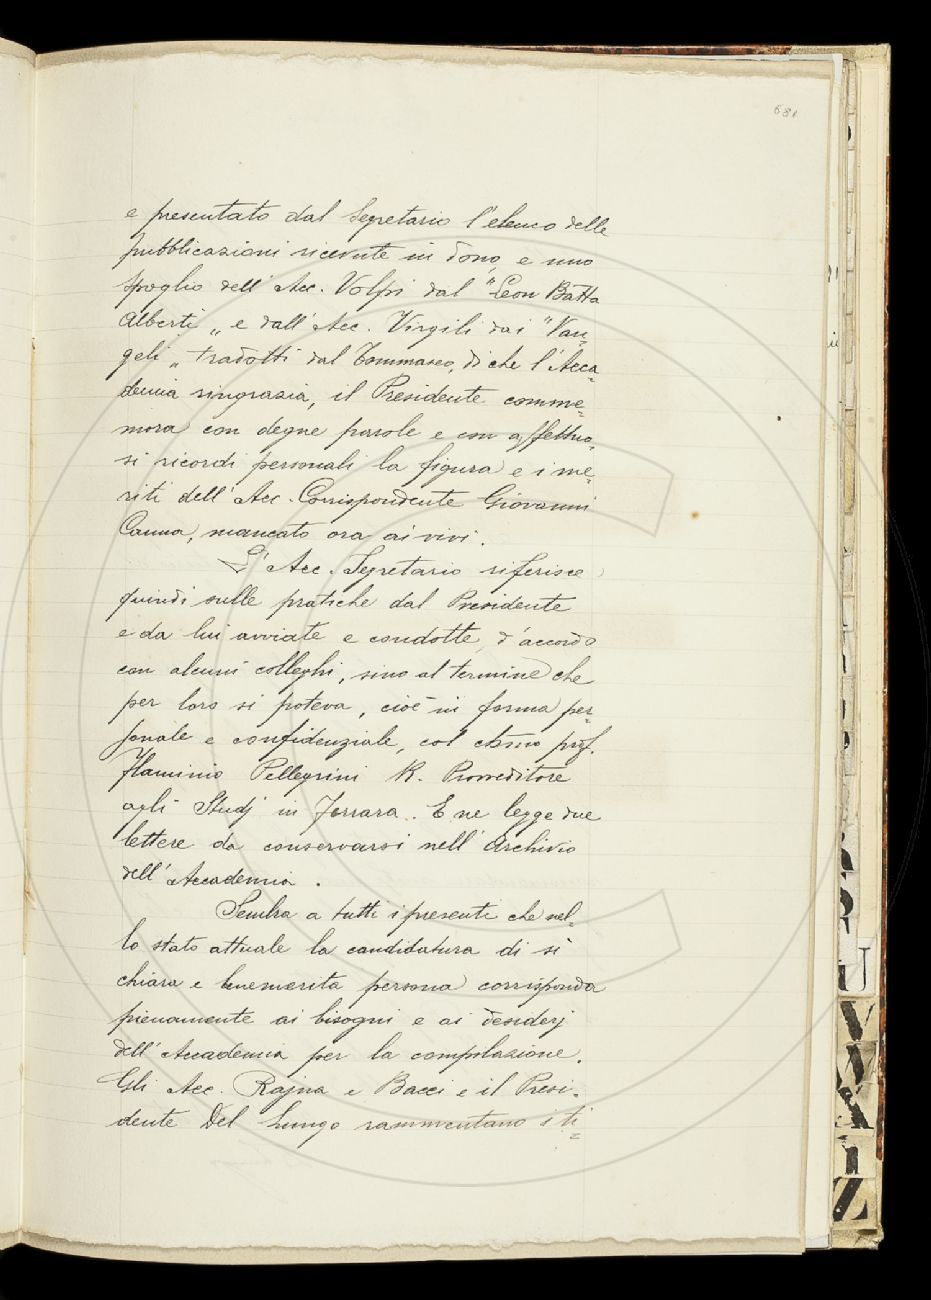 681
e presentato dal Segretario l'elenco delle
pubblicazioni ricevute in dono e uno
spoglio dell'Acc. Volpi dal "Leon Batta
Alberti„ e dall'Acc. Virgili dai "Van=
geli„ tradotti dal Tommaseo, di che l'Acca=
demia ringrazia, il Presidente comme=
mora con degne parole e con affettuo=
si ricordi personali la figura e i me=
riti dell'Acc. Corrispondente Giovanni
Canna, mancato ora ai vivi.
L'Acc. Segretario riferisce
quindi sulle pratiche dal Presidente
e da lui avviate e condotte, d'accordo
con alcuni colleghi, sino al termine che
per loro si poteva, cioè in forma per=
sonale e confidenziale, col chmo prof.
Flaminio Pellegrini R. Provveditore
agli Studj in Ferrara. E ne legge due
lettere da conservarsi nell'Archivio
dell'Accademia.
Sembra a tutti i presenti che nel=
lo stato attuale la candidatura di sì
chiara e benemerita persona corrisponda
pienamente ai bisogni e ai desiderj
dell'Accademia per la compilazione.
Gli Acc. Rajna e Bacci e il Presi=
dente Del Lungo rammentano i ti=
U
V
W
X
Z